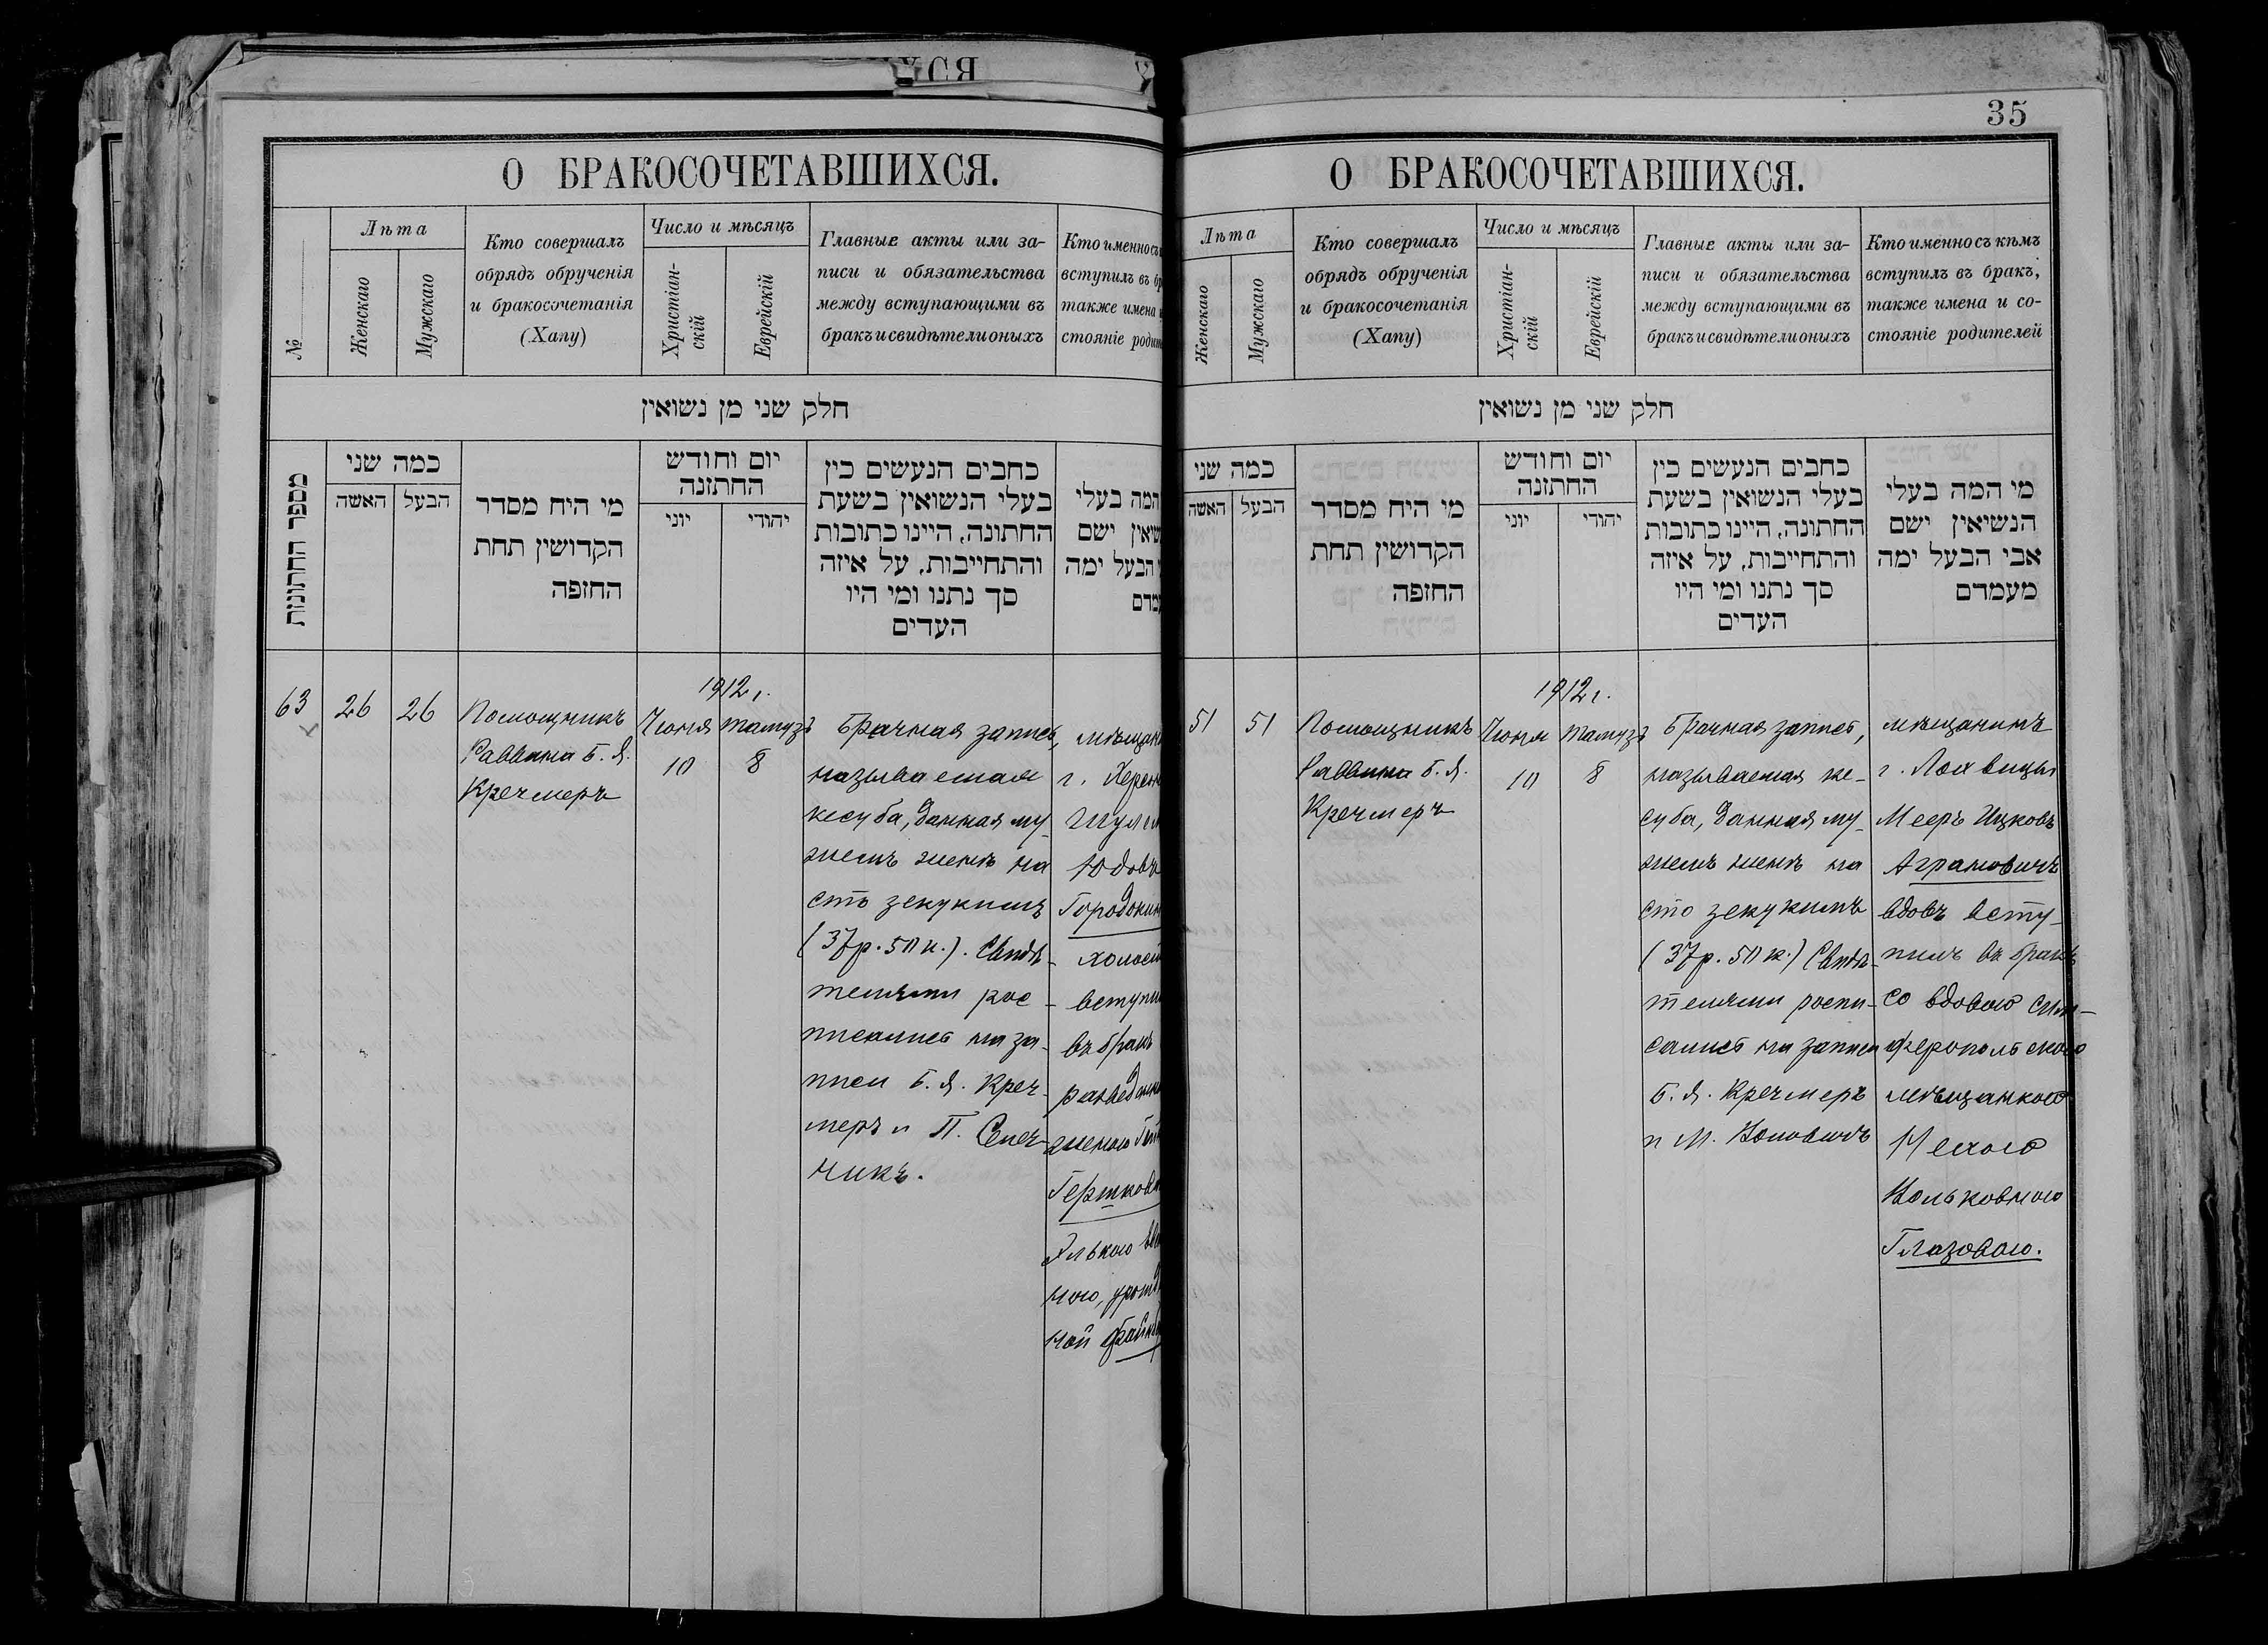 О БРАКОСОЧЕТАВШИХСЯ.
№
Лѣта
Женскаго
Мужскаго
Кто совершалъ
обрядъ обрученія
и бракосочетанія
(Хапу)
Число и мѣсяцъ
Христіан-
скій
Еврейскій
Главные акты или за-
писи и обязательства
между вступающими въ
бракъ и свидѣтели оныхъ
Кто именно съ
вступилъ въ
также имена
стояніе
חלק שני מן נשואין
מספר החתונות
כמה שני
האשה
הבעל
מי היח מסדר
הקדושין תחת
החזפה
יום וחודש
החתזנה
יוני
יהודי
כחבים הנעשים כין
בעלי הנשואין בשעת
החתונה, היינו כתובות
והתחייבות, על איזה
סך נתנו ומי היו
העדים
המה בעלי
ישם
הבעל ימה
63
26
26
Помощникъ
Раввина Б. Я.
Кречмеръ
1912 г.
Июня
10
Тамузъ
8
Брачная запись,
называемая
кесуба, данная му-
жемъ женѣ на
сто зекукимъ
(37 р. 50 к.). Свидѣ-
телями рос-
писались на за-
писи Б. Я. Креч-
меръ и П. Слеч-
никъ.
г.
Юдовъ
въ бракъ
35
О БРАКОСОЧЕТАВШИХСЯ.
Лѣта
Женскаго
Мужскаго
Кто совершалъ
обрядъ обрученія
и бракосочетанія
(Хапу)
Число и мѣсяцъ
Христіан-
скій
Еврейскій
Главные акты или за-
писи и обязательства
между вступающими въ
бракъ и свидѣтели оныхъ
Кто именно съ кѣмъ
вступилъ въ бракъ,
также имена и со-
стояніе родителей
חלק שני מן נשואין
כמה שני
האשה
הבעל
מי היח מסדר
הקדושין תחת
החזפה
יום וחודש
החתזנה
יוני
יהודי
כחבים הנעשים כין
בעלי הנשואין בשעת
החתונה, היינו כתובות
והתחייבות, על איזה
סך נתנו ומי היו
העדים
מי המה בעלי
הנשיאין ישם
אבי הבעל ימה
מעמדם
51
51
Помощникъ
Раввина Б. Я.
Кречмеръ
1912 г.
Июня
10
Тамузъ
8
Брачная запись,
называемая ке-
суба, данная му-
жемъ женѣ на
сто зекукимъ
(37 р. 50 к.) Свидѣ-
телями роспи-
сались на записи
Б. Я. Кречмеръ
и М.
мѣщанинъ
г. Лохвицы
Мееръ Ицковъ
Аграновичъ
вдовъ всту-
пилъ въ бракъ
со вдовою сим-
феропольскою
мѣщанкою
Нехою
Вольковною
Глазовою.